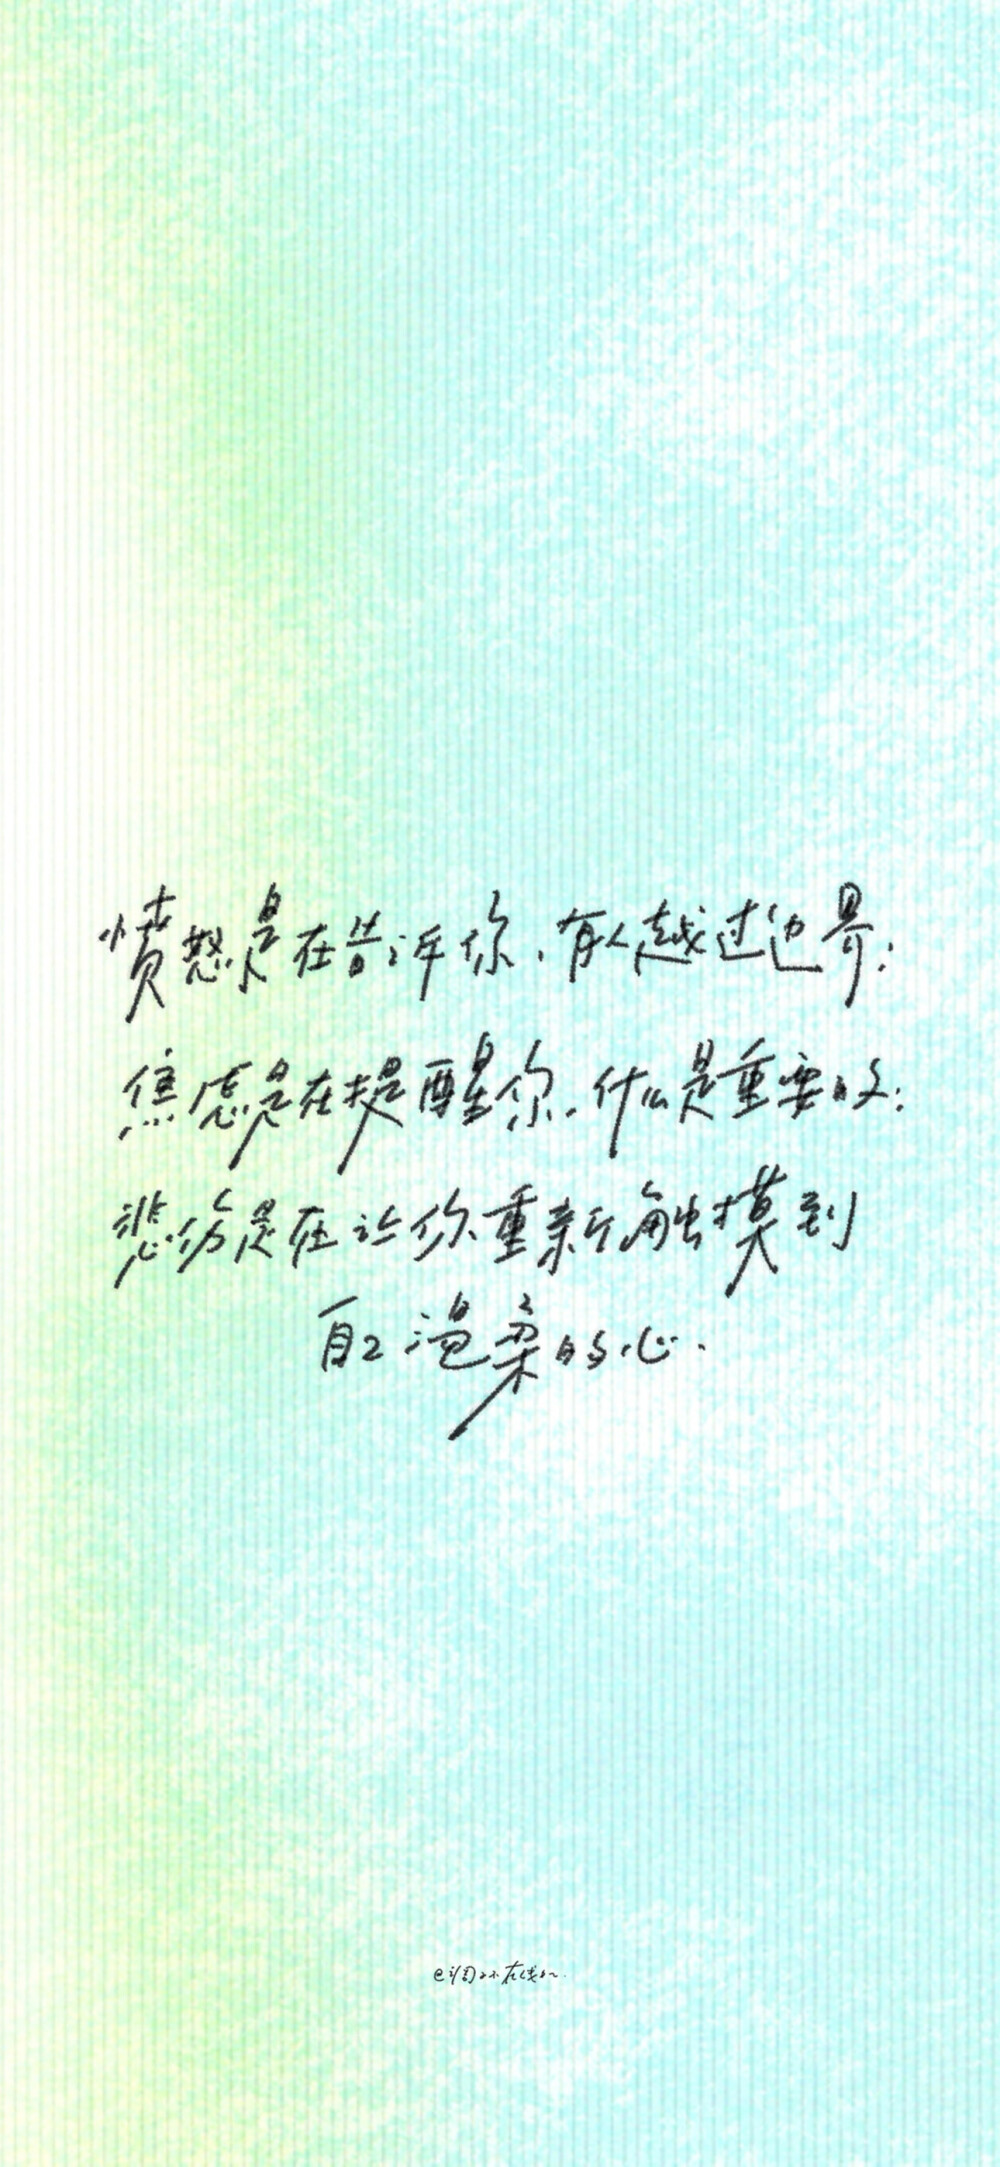 愤怒是在告诉你,有人越过边界;
焦虑是在提醒你,什么是重要的;
悲伤是在让你重新触摸到
自己温柔的心.